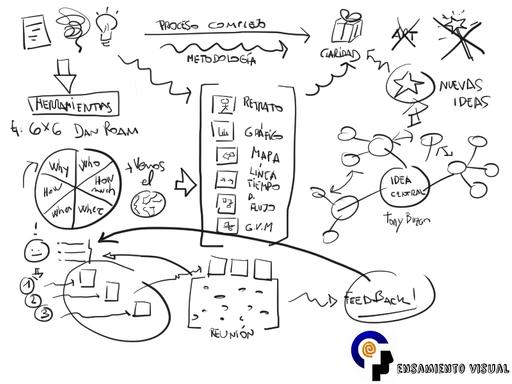 PROCESO COMPLETO
METODOLOGÍA
CLARIDAD
ART
NUEVAS
IDEAS
HERRAMIENTAS
6x6 DAN ROAM
WHY
WHO
HOW
HOW
MUCH
WHEN
WHERE
+ VEMOS
EL
RETRATO
GRÁFICO
MAPA
LÍNEA
TIEMPO
D.
FLUJO
G.V.M
IDEA
CENTRAL
TONY BUZAN
1
2
3
REUNIÓN
FEEDBACK!
ENSAMIENTO VISUAL